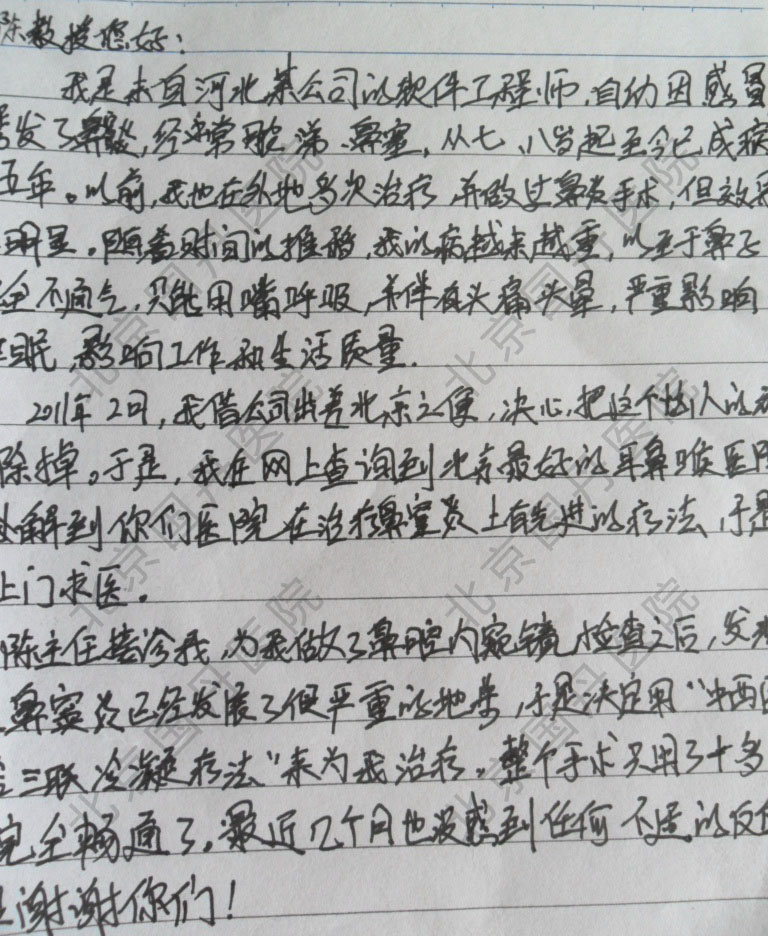 陈教授您好:
我是来自河北某公司的软件工程师,自幼因感冒
发了鼻炎,经常流涕、鼻塞,从七、八岁起至今已成病
五年。以前,我也在外地多次治疗,并做过鼻炎手术,但效果
明显。随着时间的推移,我的病越来越重,以至于鼻子
全不通气,只能用嘴呼吸,并伴有头痛头晕,严重影响
眠,影响工作和生活质量.
2011年2月,我借公司出差北京之便,决心,把这个烦人的病
除掉。于是,我在网上查询到北京最好的耳鼻喉医院
解到你们医院在治疗鼻窦炎上有先进的疗法,于是
上门求医。
陈主任接诊我,为我做了鼻腔内窥镜检查之后,发现
鼻窦炎已经发展了很严重的地步,于是决定用“中西医
三联冷凝疗法”来为我治疗。整个手术只用了十多
完全畅通了。最近几个月也没感到任何不适的反应
谢谢你们!
北京国丹医院